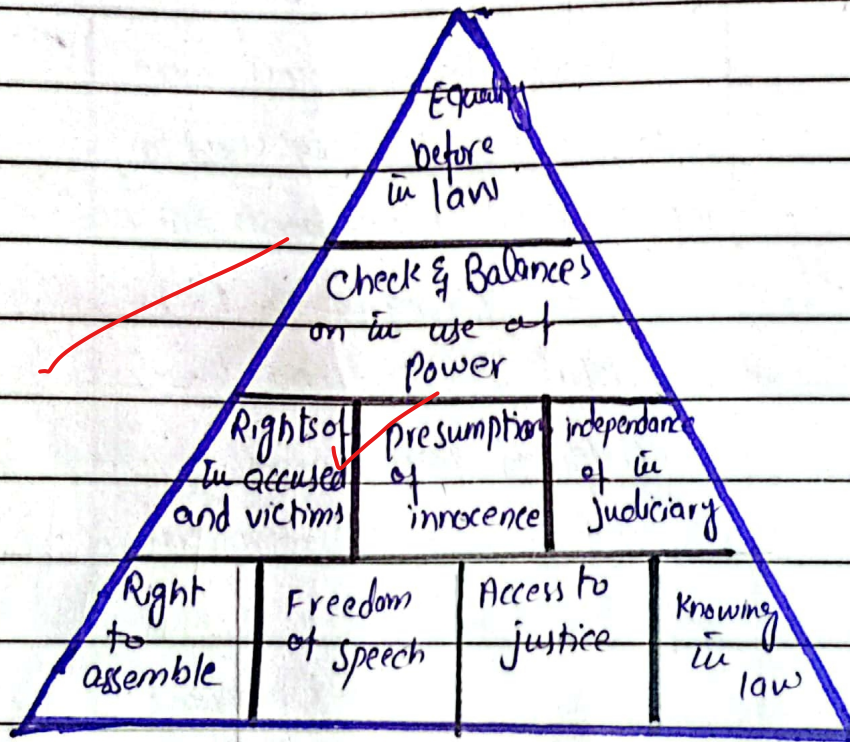 Equality
before
the law
Check & Balances
on the use of
Power
Rights of
the accused
and victims
presumption
of
innocence
independance
of the
judiciary
Right
to
assemble
Freedom
of speech
Access to
justice
Knowing
the
law